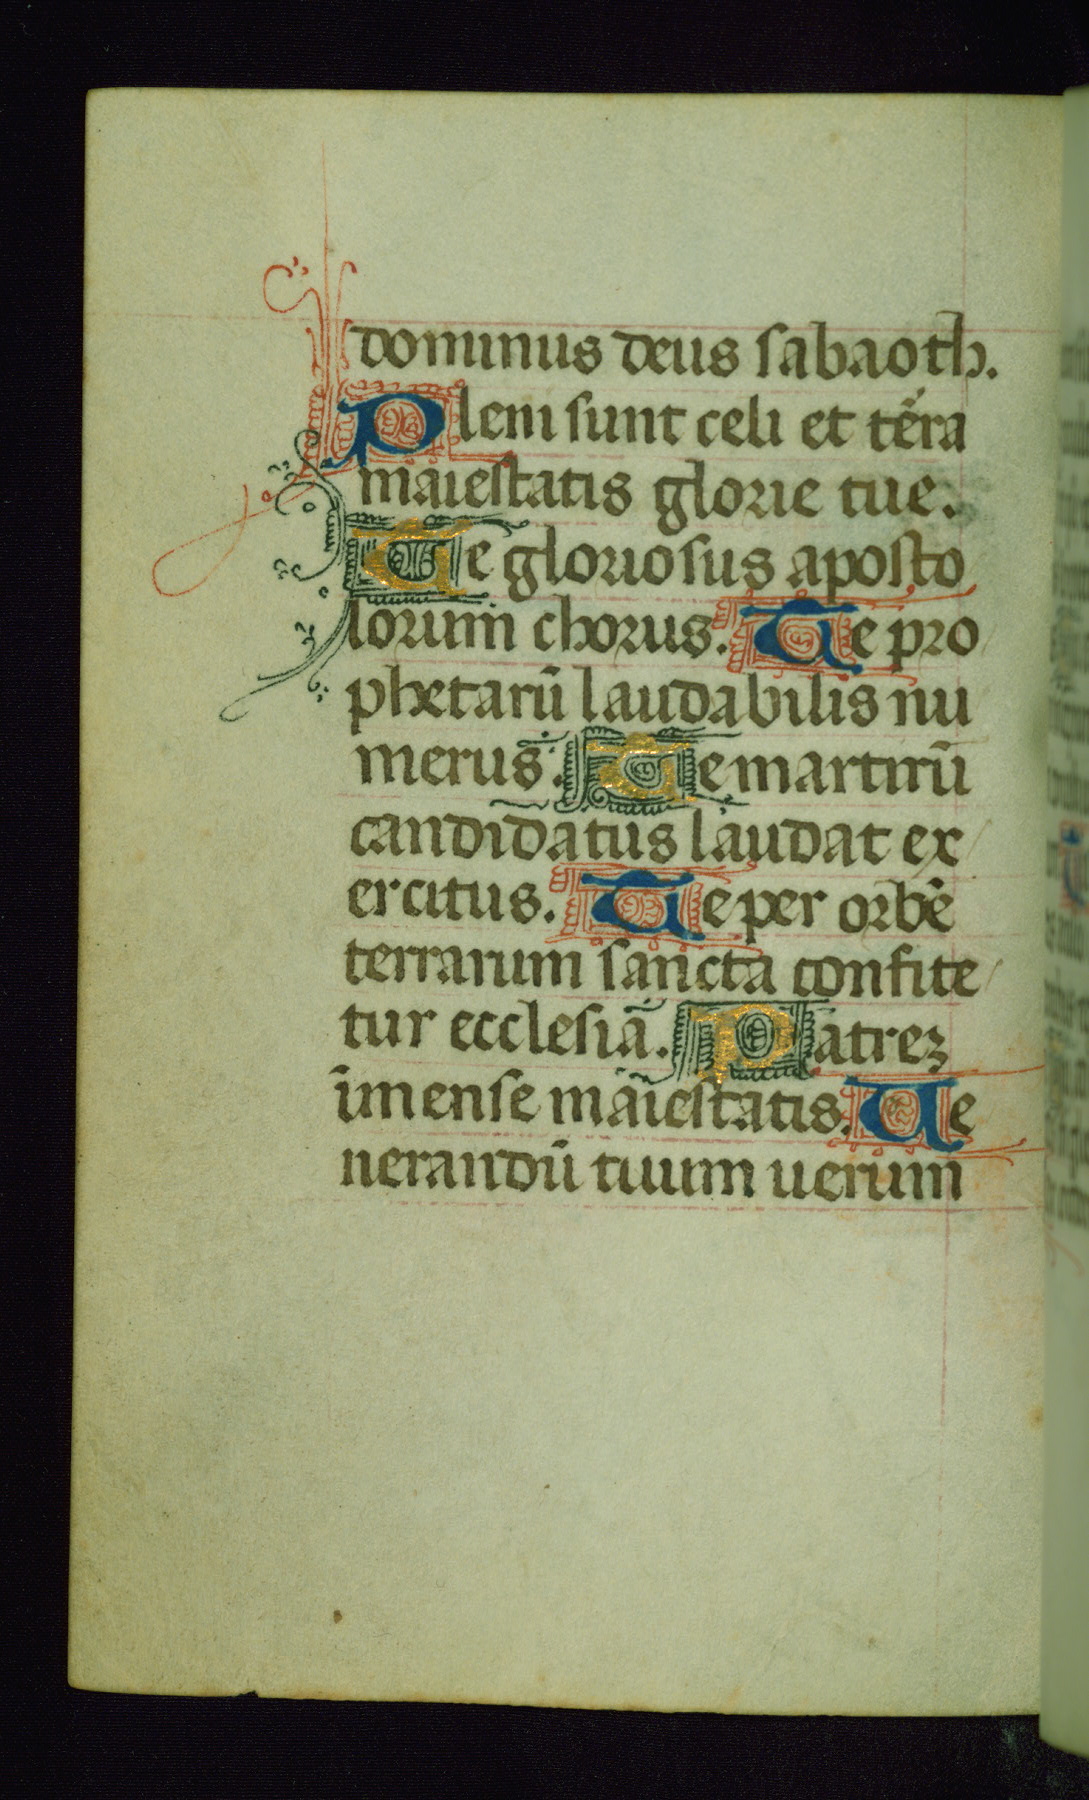 dominus deus sabaoth.
Pleni sunt celi et terra
maiestatis glorie tue.
Te gloriosus aposto
lorum chorus. Te pro
phetarū laudabilis nu
merus. Te martirū
candidatus laudat ex
ercitus. Te per orbē
terrarum sancta confite
tur ecclesia. Patrez
īmense maiestatis. Ue
nerandū tuum uerum